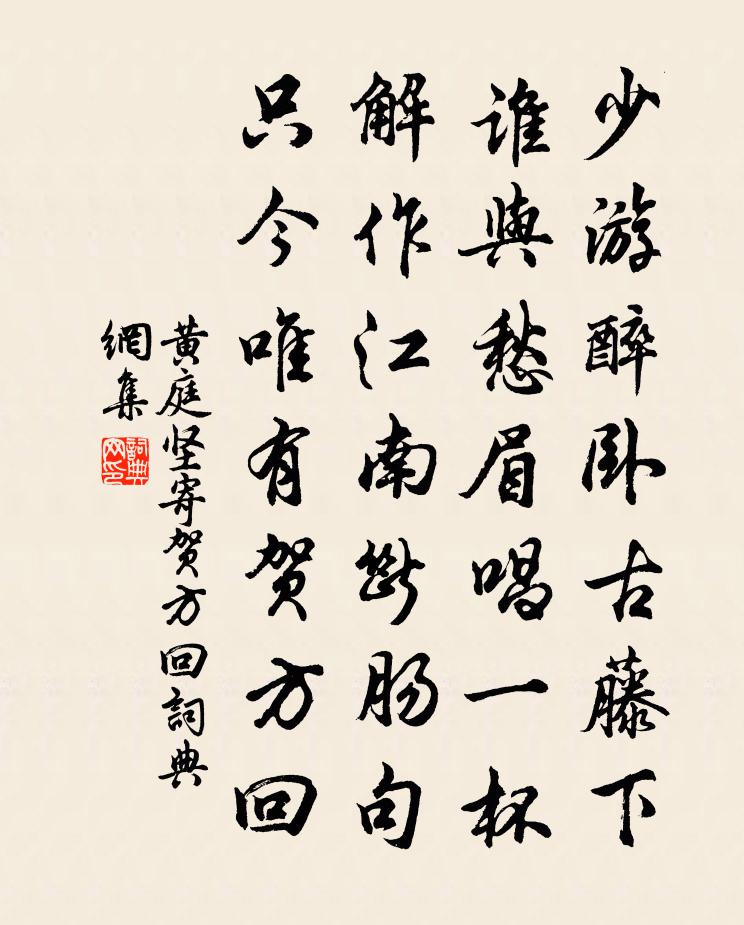 少游醉卧古藤下
誰與愁眉唱一杯
解作江南斷腸句
只今唯有贺方回
黄庭坚寄贺方回詞典
網集
詞典
网印